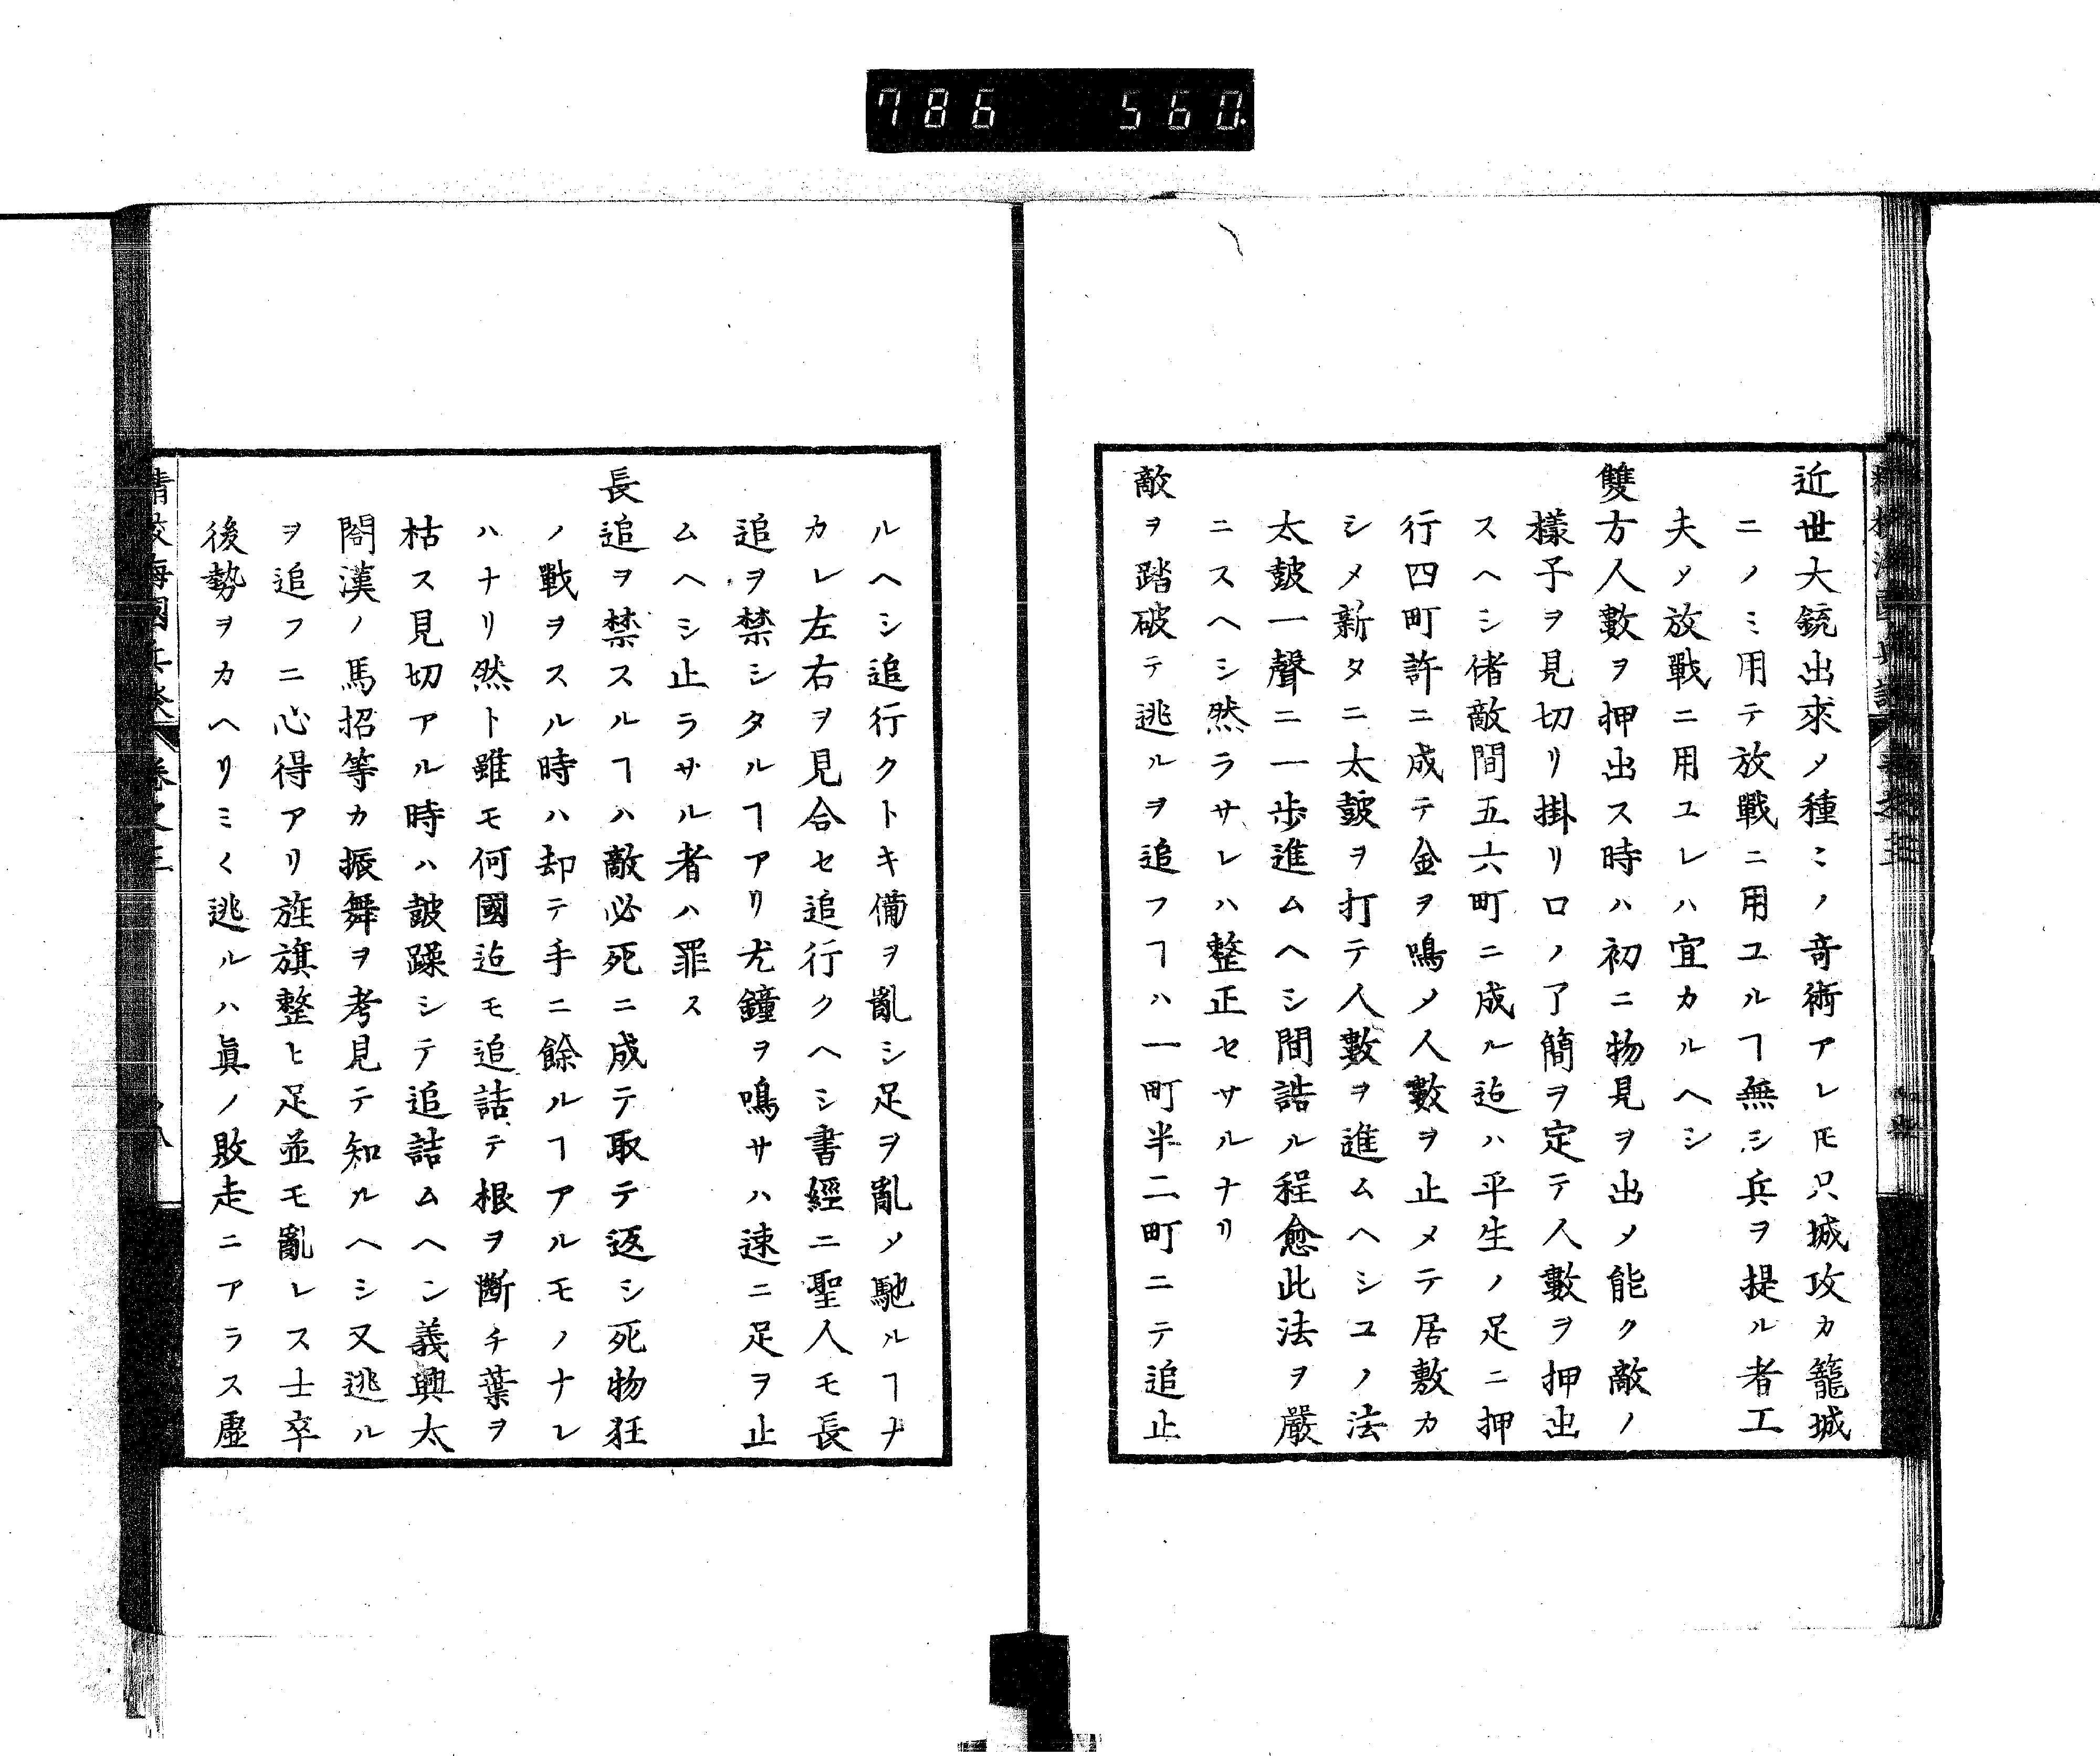 786 560
近世大銃出來ノ種〻ノ竒術アレ𪜈只城攻カ籠城
ニノミ用テ放戰ニ用ユルヿ無シ兵ヲ提ル者工
夫ノ放戰ニ用ユレハ宜カルヘシ
雙方人數ヲ押出ス時ハ初ニ物見ヲ出メ能ク敵ノ
樣子ヲ見切リ掛リロノ了簡ヲ定テ人數ヲ押出
スヘシ偖敵間五六町ニ成ル迠ハ平生ノ足ニ押
行四町許ニ成テ金ヲ鳴メ人數ヲ止メテ居敷カ
シメ新タニ太皷ヲ打テ人數ヲ進ムヘシユノ法
太皷一聲ニ一歩進ムヘシ間誥ル程愈此法ヲ嚴
ニスヘシ然ラサレハ整正セサルナリ
敵ヲ踏破テ逃ルヲ追フヿハ一町半二町ニテ追止
ルヘシ追行クトキ備ヲ亂シ足ヲ亂メ馳ルヿナ
カレ左右ヲ見合セ追行クヘシ書經ニ聖人モ長
追ヲ禁シタルヿアリ尤鐘ヲ鳴サハ速ニ足ヲ止
ムヘシ止ラサル者ハ罪ス
長追ヲ禁スルヿハ敵必死ニ成テ取テ返シ死物狂
ノ戰ヲスル時ハ却テ手ニ餘ルヿアルモノナレ
ハナリ然ト雖モ何國迠モ追詰テ根ヲ斷チ葉ヲ
枯ス見切アル時ハ皷躁シテ追詰ムヘン義興太
閤漢ノ馬招等カ振舞ヲ考見テ知ルヘシ又逃ル
ヲ追フニ心得アリ旌旗整ヒ足並モ亂レス士卒
後勢ヲカヘリミく逃ルハ眞ノ敗走ニアラス虛
海國兵談 卷之三